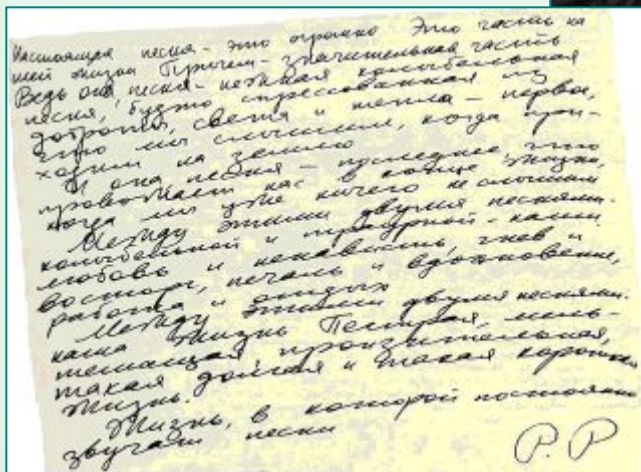 Настоящая песня - это огромно Это часть на
шей жизни Причем - значительная часть
Ведь она песня - нежная колыбельная
песня, будто спрессованная из
доброты, света и тепла - первое,
что мы слышим, когда при-
ходим на землю
И она песня - последнее что
провожает нас в конце жизни,
когда мы уже ничего не слышим
Между этими двумя песнями.
колыбельной и траурной - наши
любовь и ненависть, гнев и
восторг, печаль и вдохновение,
работа и отдых
Между этими двумя песнями.
наша жизнь Пестрая, мель-
тешащая пронзительная,
такая долгая и такая короткая
жизнь.
Жизнь, в которой постоянно
звучат песни
Р. Р